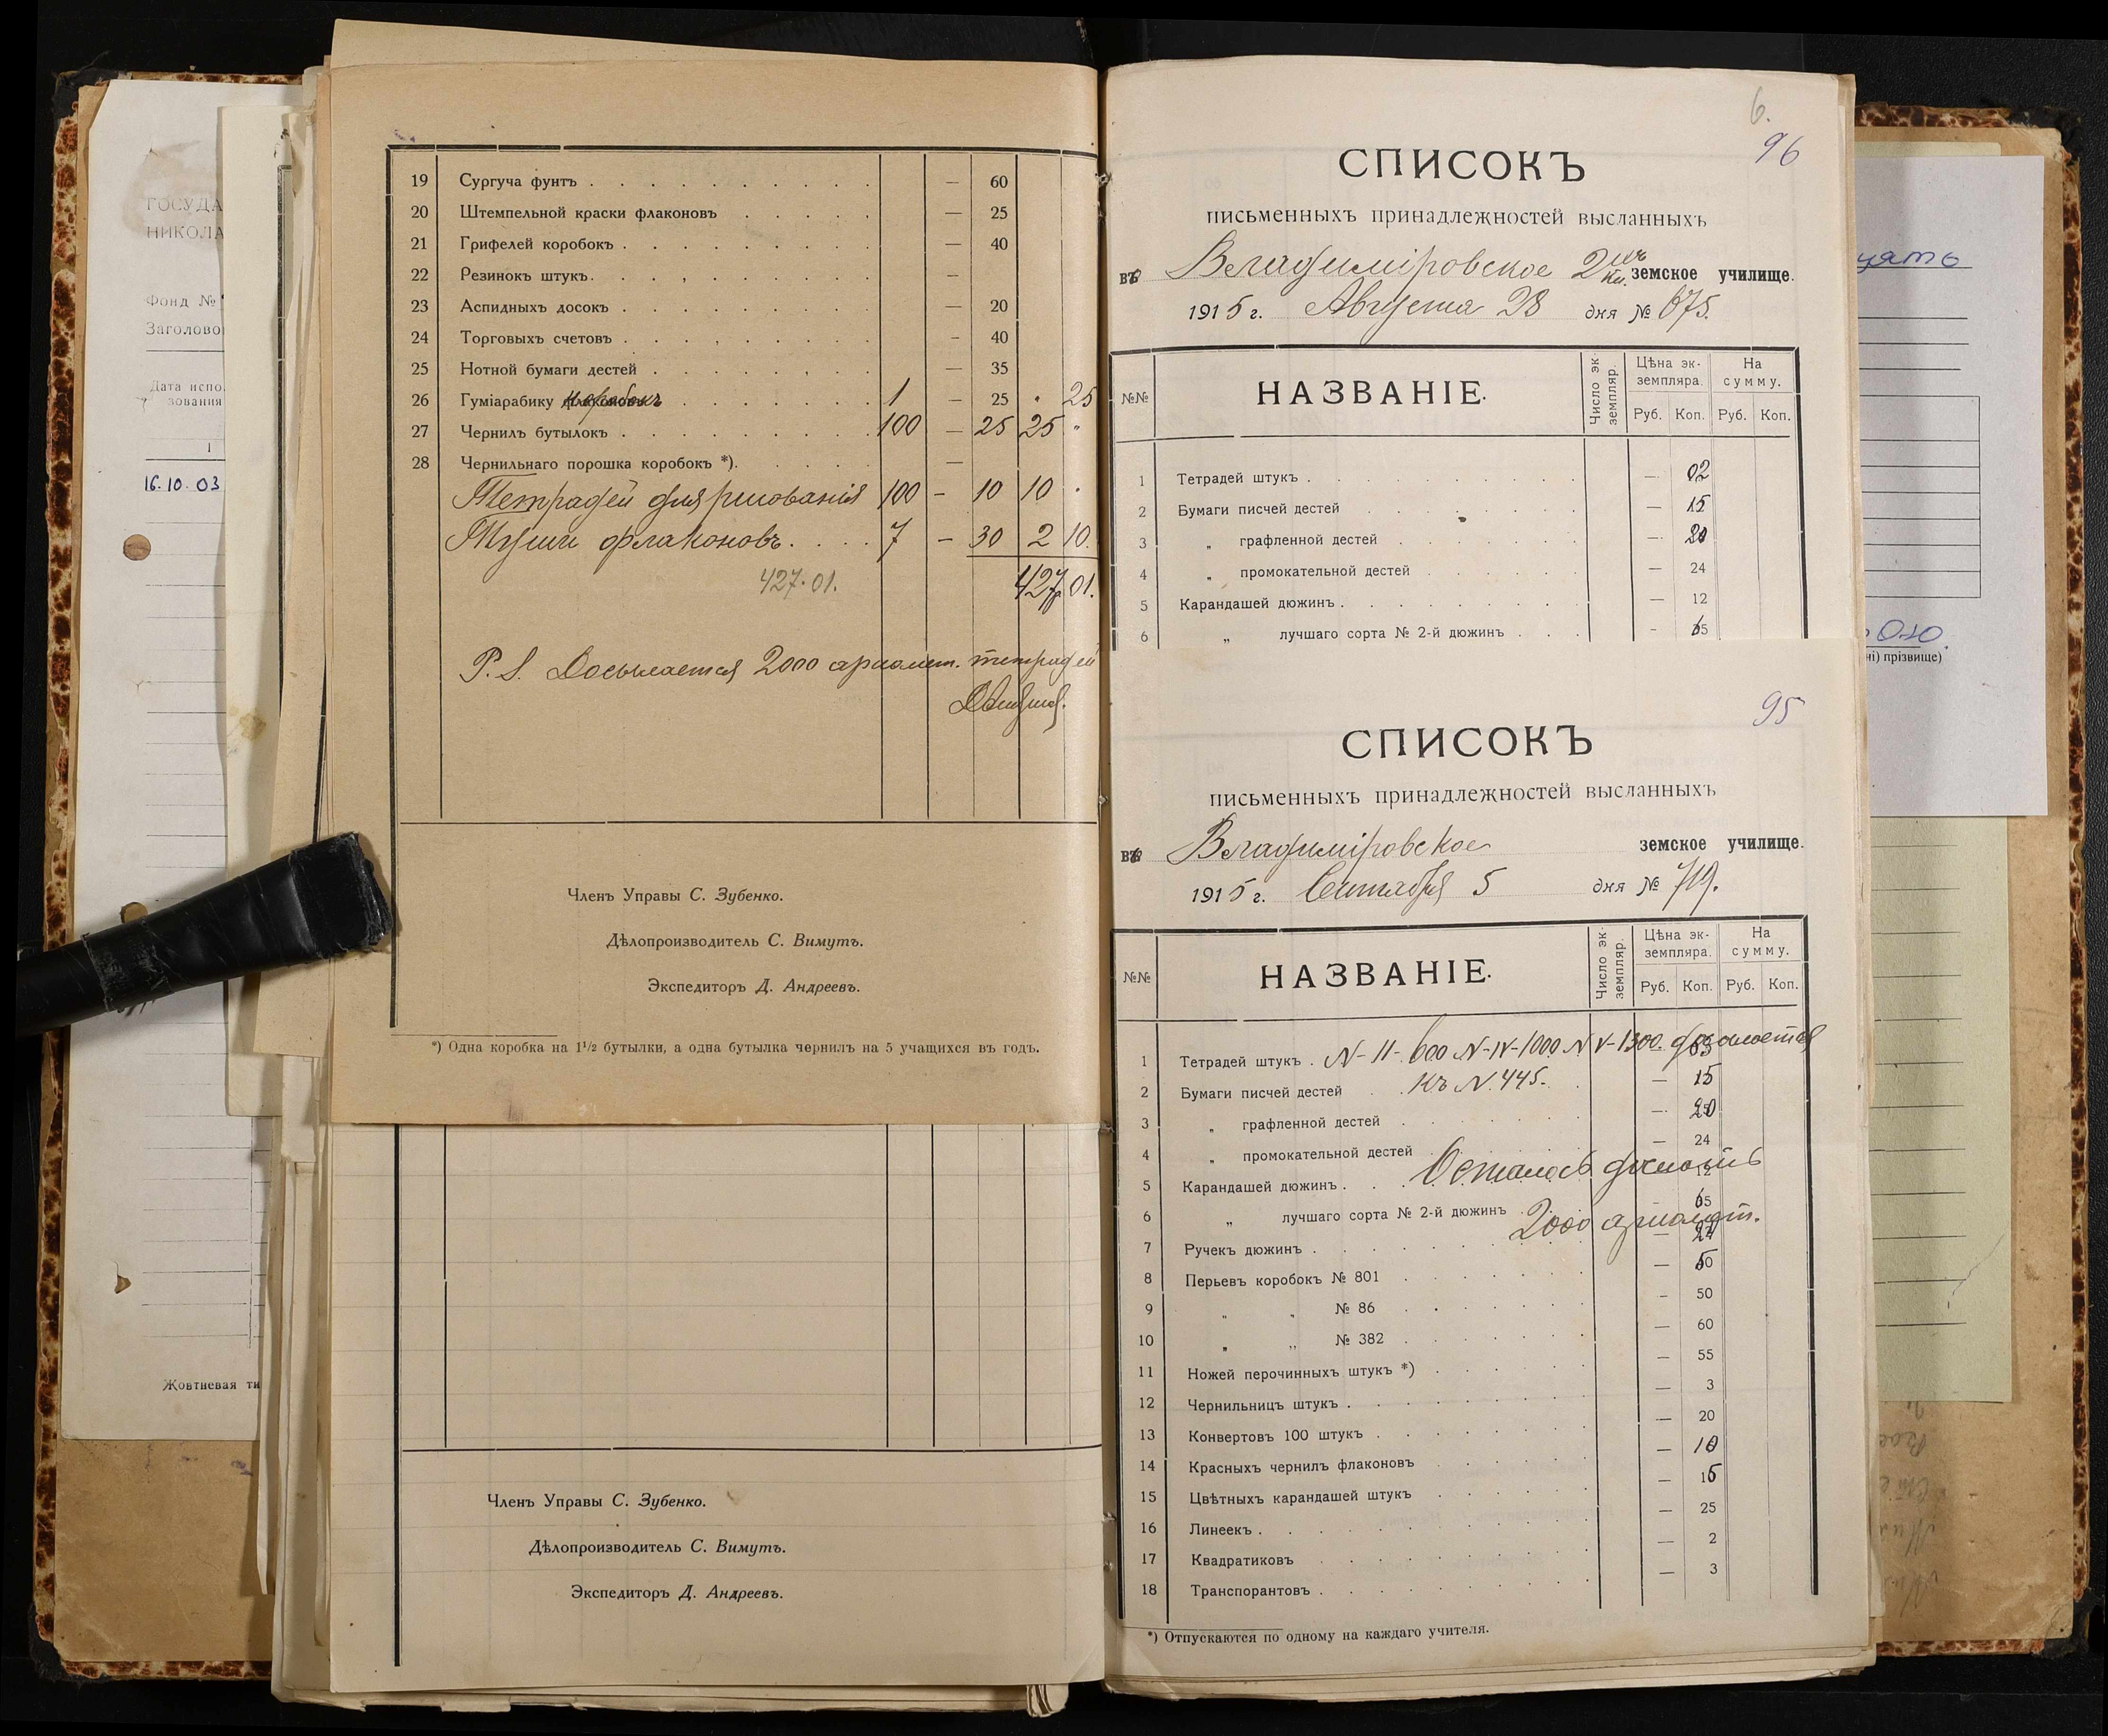 ГОСУДА
НИКОЛА
Фонд №
Заголово
Дата испо
зования
1
16.10.03
Жовтневая ти
19 Сургуча фунтъ — 60
20 Штемпельной краски флаконовъ — 25
21 Грифелей коробокъ — 40
22 Резинокъ штукъ —
23 Аспидныхъ досокъ — 20
24 Торговыхъ счетовъ - 40
25 Нотной бумаги дестей — 35
26 Гумiарабику коробокъ 1 — 25 " 25
27 Чернилъ бутылокъ 100 — 25 25 "
28 Чернильнаго порошка коробокъ *) —
Тетрадей для рисованія 100 - 10 10 "
Туши флаконовъ 7 - 30 2 10.
427.01. 427 01.
P. S. Досылается 2000 арифмет. тетрадей
Членъ Управы С. Зубенко.
Дѣлопроизводитель С. Вимутъ.
Экспедиторъ Д. Андреевъ.
*) Одна коробка на 1½ бутылки, а одна бутылка чернилъ на 5 учащихся въ годъ.
Членъ Управы С. Зубенко.
Дѣлопроизводитель С. Вимутъ.
Экспедиторъ Д. Андреевъ.
6.
96
СПИСОКЪ
письменныхъ принадлежностей высланныхъ
въ Владиміровское 2 кл. земское училище.
1915 г. Августа 28 дня № 675.
№№ НАЗВАНІЕ. Число экземпляр. Цѣна экземпляра. На сумму.
Руб. Коп. Руб. Коп.
1 Тетрадей штукъ — 02
2 Бумаги писчей дестей — 15
3 „ графленной дестей — 20
4 „ промокательной дестей — 24
5 Карандашей дюжинъ — 12
6 „ лучшаго сорта № 2-й дюжинъ - 65
95
СПИСОКЪ
письменныхъ принадлежностей высланныхъ
въ Владиміровское земское училище.
1915 г. Сентября 5 дня № 719.
№№ НАЗВАНІЕ. Число экземпляр. Цѣна экземпляра. На сумму.
Руб. Коп. Руб. Коп.
1 Тетрадей штукъ N-II-600 N-IV-1000 N V-1300 досылается
2 Бумаги писчей дестей къ N.445. — 15
3 „ графленной дестей — 20
4 „ промокательной дестей — 24
Осталось дослать
5 Карандашей дюжинъ
6 „ лучшаго сорта № 2-й дюжинъ - 65
2000 арифмет.
7 Ручекъ дюжинъ —
8 Перьевъ коробокъ № 801 — 60
9 „ „ № 86 — 50
10 „ „ № 382 — 60
11 Ножей перочинныхъ штукъ *) — 55
12 Чернильницъ штукъ — 3
13 Конвертовъ 100 штукъ — 20
14 Красныхъ чернилъ флаконовъ — 10
15 Цвѣтныхъ карандашей штукъ — 15
16 Линеекъ — 25
17 Квадратиковъ — 2
18 Транспорантовъ — 3
*) Отпускаются по одному на каждаго учителя.
ні) прізвище)